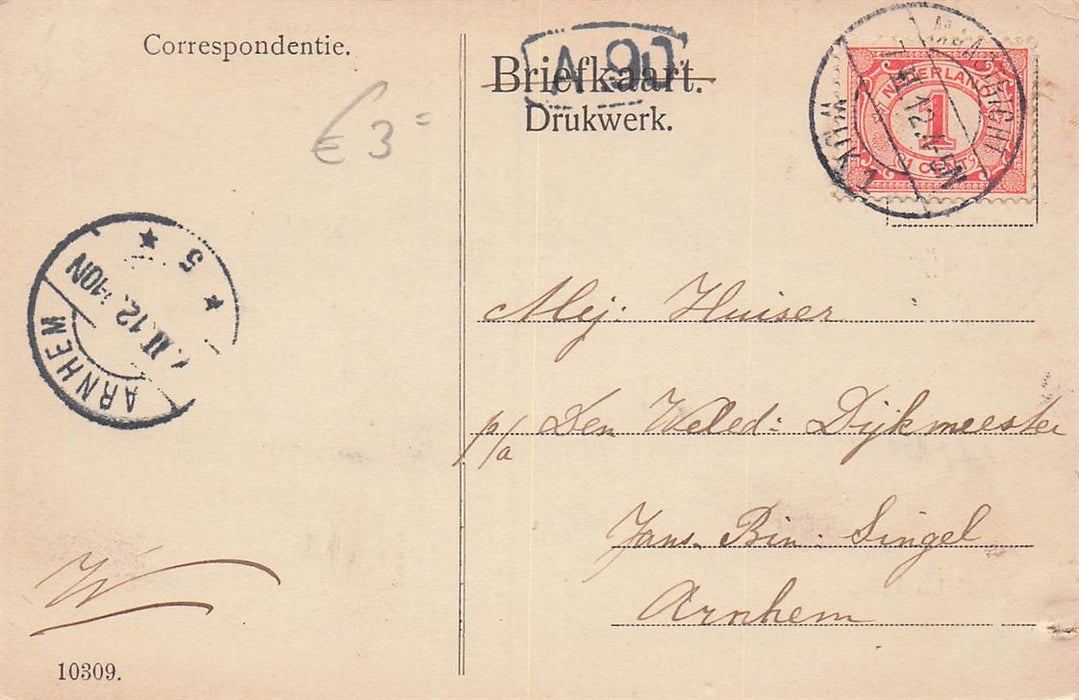 Correspondentie.
€ 3=
A 90
Briefkaart.
Drukwerk.
MAASTRICHT
WIJK 1
12.
NEDERLAND
1
CENT
5
ARNHEM
II.12.
-10N
Mej: Huiser
p/a Den Weled: Dijkmeester
Jans. Bin: Singel
Arnhem
W
10309.